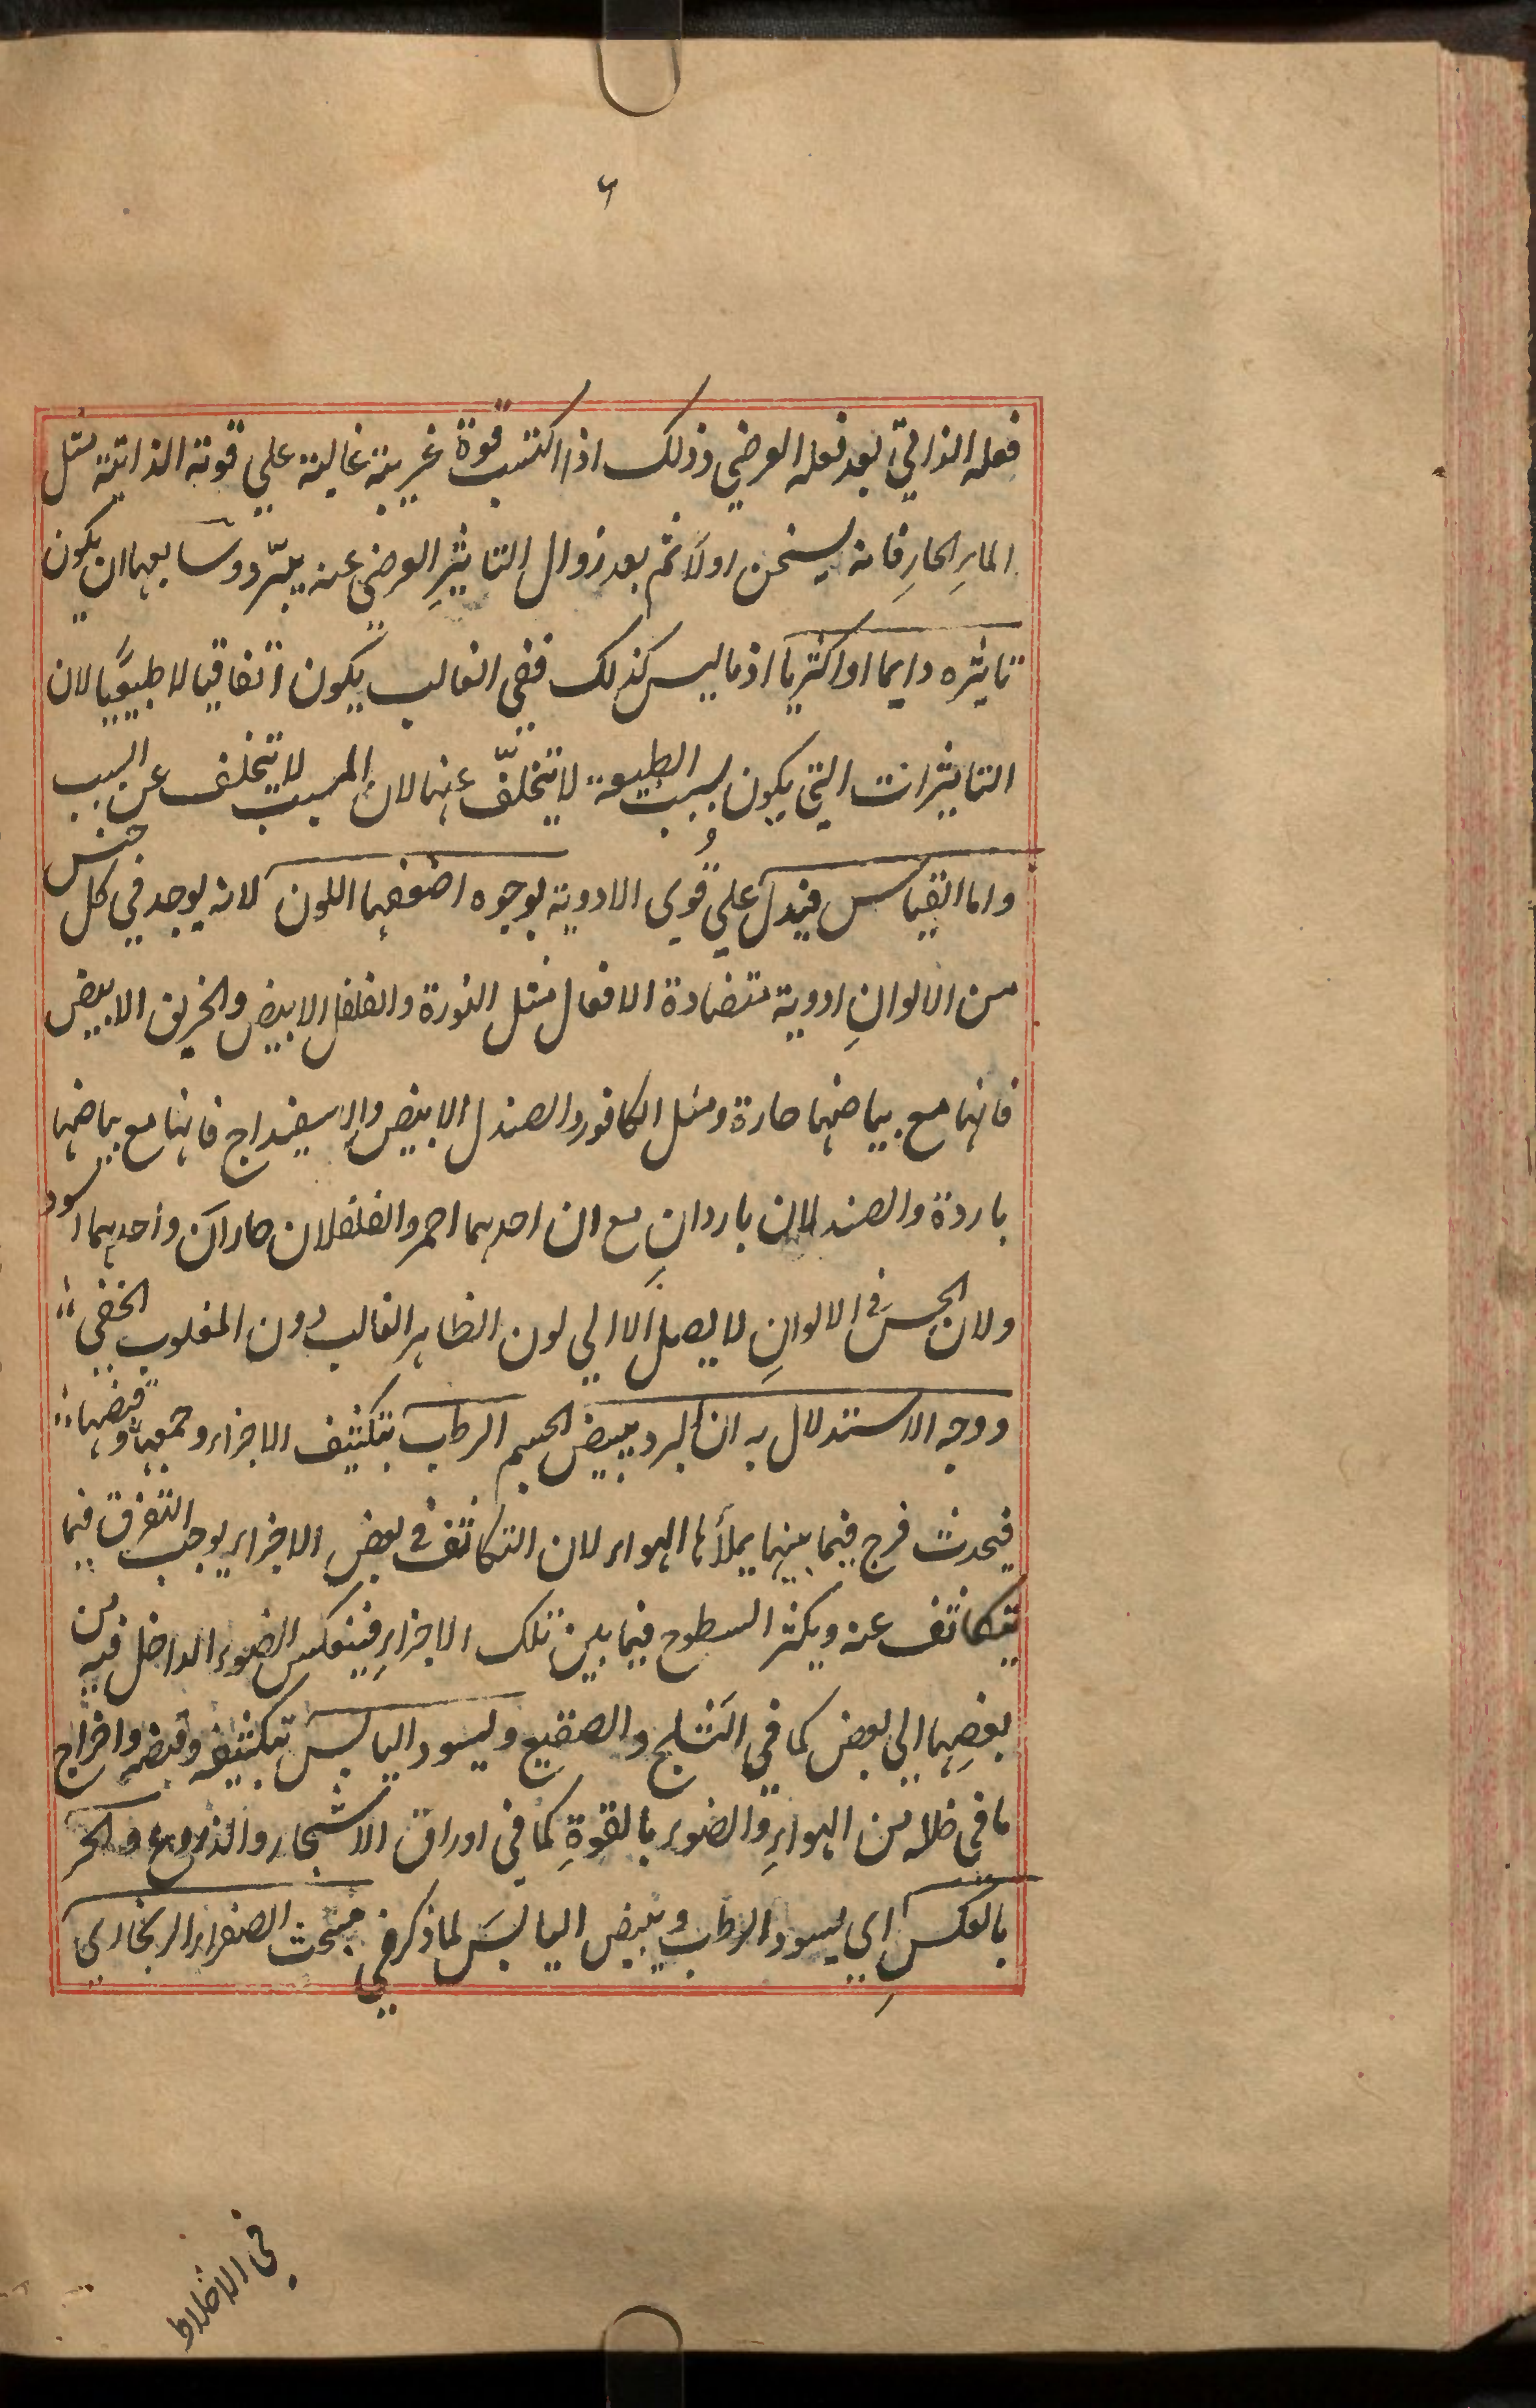 ٦
فعله الذاتي بعد فعله العرضي وذلك اذا اكتسب قوة غريبة غالبة علي قوته الذاتية مثل
الماءِ الحارِ فانه يسخن اولاً ثم بعد زوال التاثيرِ العرضي عنه يبرّد وسابعها ان يكون
تاثيره دايما او اكثريا اذ ما ليس كذلك ففي الغالب يكون اتفاقيا لا طبيعيًا لان
التاثيرات التي يكون بسبب الطبيعة لا تتخلّف عنها لان المسبب لا يتخلف عن السبب
واما القياس فيدل علي قُوي الادوية بوجوه اضعفها اللون لانه يوجد في كل جنس
من الالوانِ ادوية متضادة الافعال مثل النورة والفلفل الابيض والخربق الابيض
فانها مع بياضها حارة ومثل الكافور والصندل الابيض والاسفيداج فانها مع بياضها
باردة والصندلان باردانِ مع ان احدهما احمر والفلفلان حاران واحدهما اسود
ولان الحس في الالوانِ لا يصل الا الي لون الظاهر الغالب دون المغلوب الخفي
ووجه الاستدلال به ان البرد يبيض الجسم الرطب بتكثيف الاجزاء وجمعها وقبضها
فيحدث فرج فيما بينها يملأها الهواء لان التكاثف في بعض الاجزاء يوجب التفرق فيما
يتكاثف عنه ويكثر السطوح فيما بين تلك الاجزاءِ فينعكس الضوء الداخل فيه من
بعضِها الي بعض كما في الثلج والصقيع ويسود اليابس بتكثيفه وقبضه واخراج
ما في خلاله من الهواءِ والضوء بالقوةِ كما في اوراق الاشجار والزروع والحر
بالعكسِ اي يسود الرطب ويبيض اليابسَ لما ذكر في مبحث الصفراء الزنجاري
في الاخلاط